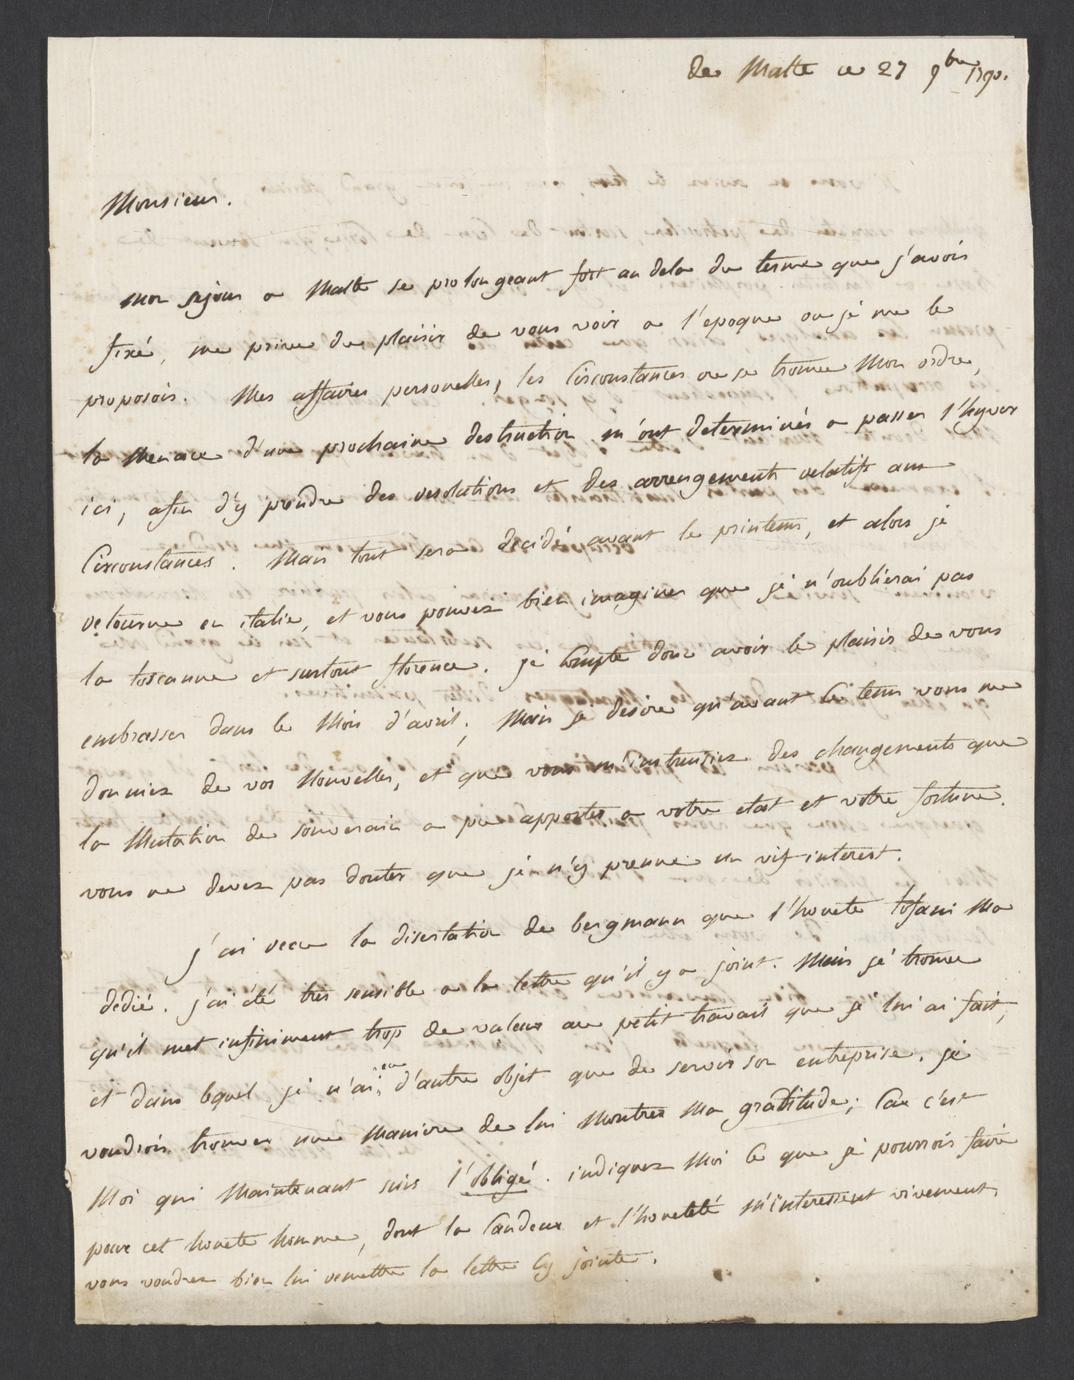 De Malte ce 27 9bre 1790.
Monsieur.
Mon sejour a Malte se prolongeant fort au dela du terme que j'avois
fixé, me prive du plaisir de vous voir a l'epoque ou je me le
proposois. Mes affaires personelles, les Circonstances ou se trouve Mon ordre,
la Menace d'une prochaine destruction m'ont determinés a passer l'hyver
ici, afin d'y prendre des resolutions et des arrengements relatifs aux
Circonstances. Mais tout sera decidé avant le printems, et alors je
retourne en italie, et vous pouvez bien imaginer que je n'oublierai pas
la toscanne et surtout florence. je Compte donc avoir le plaisir de vous
embrasser dans le Mois d'avril; Mais je desire qu'avant Ce tems vous me
donniez de vos Nouvelles, et que vous m'instruisiez des changements que
la Mutation de souverain a pu apporter a votre etat et votre fortune.
vous ne devez pas douter que je n'y prenne un vif interest.
j'ai recu la disertation de bergmann que l'honete tofani Ma
dedié. j'ai été tres sensible a la lettre qu'il y a joint. Mais je trouve
qu'il met infiniment trop de valeur au petit travail que je lui ai fait,
et dans lequel je n'ai eu d'autre objet que de servir son entreprise. je
voudrois trouver une Maniere de lui Montrer Ma gratitude; Car c'est
Moi qui Maintenant suis l'obligé. indiquez Moi Ce que je pourrois faire
pour cet honete homme, dont la Candeur et l'honeteté M'interessent vivement.
vous voudrez bien lui remettre la lettre Cy jointe.